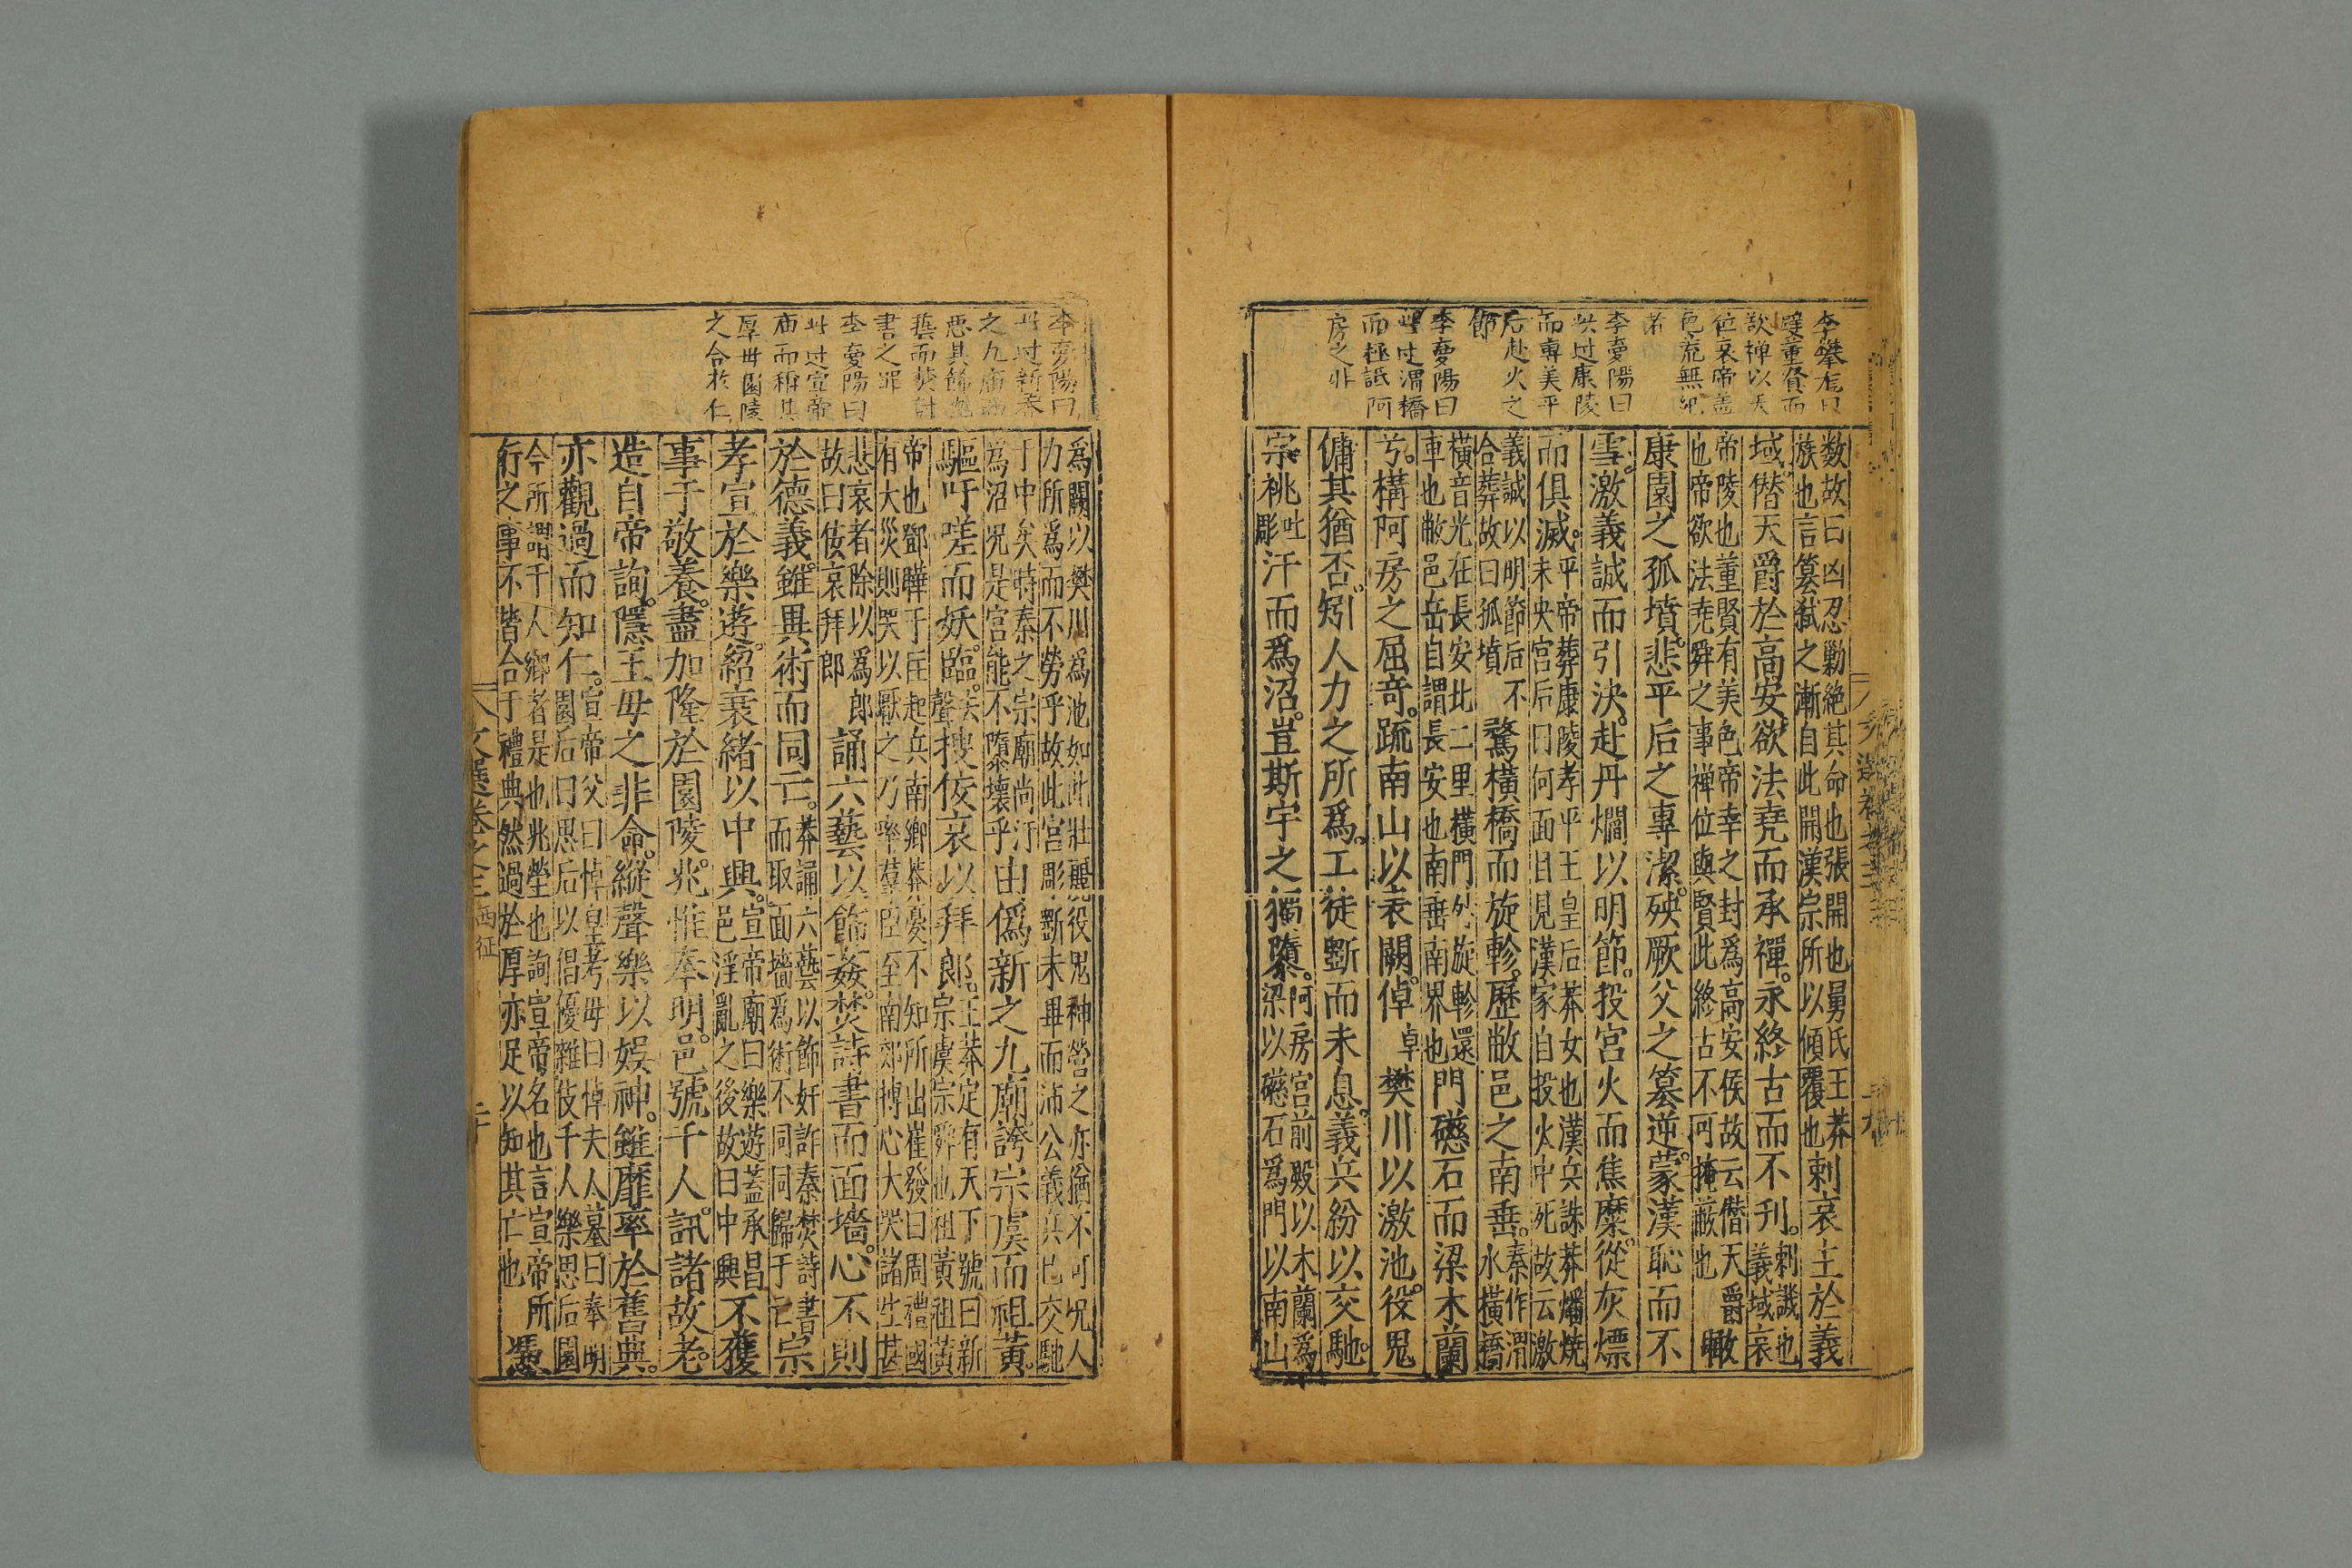 李攀龍曰
嬖董賢而
欲禪以天
位哀帝盖
色荒無紀
者
李夢陽曰
此过康陵
而專美平
后赴火之
節
李夢陽曰
此过渭橋
而極詆阿
房之非
数故曰凶忍勦絶其命也張開也舅氏王莽
族也言篡弑之漸自此開漢宗所以傾覆也
剌哀主於義
域僭天爵於高安欲法堯而承禪永終古而不刋
剌譏也
義域哀
帝陵也董賢有美色帝幸之封爲高安侯故云僭天爵
也帝欲法堯舜之事禅位與賢此終古不可掩蔽也
瞰
康園之孤墳悲平后之專潔殃厥父之篡逆蒙漢恥而不
雪激義誠而引決赴丹爓以明節投宮火而焦糜從灰熛
而俱滅
平帝葬康陵孝平王皇后莽女也漢兵誅莽燔燒
未央宮后曰何面目見漢家自投火中死故云激
義誠以明節后不
合葬故曰孤墳
騖橫橋而旋軫歷敝邑之南垂
秦作渭
水橫橋
橫音光在長安北二里橫門外旋軫還
車也敝邑岳自謂長安也南垂南界也
門礠石而梁木蘭
兮構阿房之屈竒疏南山以表闕倬
卓
樊川以激池役鬼
傭其猶否矧人力之所爲工徒斵而未息義兵紛以交馳
宗祧
吐
彫
汙而爲沼豈斯宇之獨隳
阿房宮前殿以木蘭爲
梁以礠石爲門以南山
李夢陽曰
此过新莽
之九廟而
書之罪
李夢陽曰
此过宣帝
庙而稱其
厚毋園陵
之合於仁
爲闕以樊川爲池如此壯麗役鬼神營之亦猶不可况人
力所爲而不勞乎故此宮彫斵未畢而沛公義兵已交馳
于中矣時秦之宗廟尚汙
爲沼况是宮能不隳壞乎
由僞新之九廟誇宗虞而祖黃
驅吁嗟而妖臨
去
聲
搜佞哀以拜郎
王莽定有天下號曰新
宗虞宗舜也祖黃祖黃
帝也鄧曄于匡起兵南鄉莽憂不知所出崔發曰周禮國
有大災則哭以厭之乃率羣臣至南郊搏心大哭諸生甚
悲哀者除以爲郎
故曰佞哀拜郎
誦六藝以飾姦焚詩書而面墻心不則
於德義雖異術而同亡
莽誦六藝以飾奸詐秦焚詩書
而取面墻爲術不同同歸于亡
宗
孝宣於樂遊紹衰緒以中興
宣帝廟曰樂遊蓋承昌
邑淫亂之後故曰中興
不獲
事于敬養盡加隆於園陵兆惟奉明邑號千人訊諸故老
造自帝詢隱王毋之非命縱聲樂以娛神雖靡率於舊典
亦觀過而知仁
宣帝父曰悼皇考毋曰悼夫人墓曰奉明
園后曰思后以倡優雜伎千人樂思后園
今所謂千人鄉者是也兆塋也詢宣帝名也言宣帝所
行之事不皆合于禮典然過於厚亦足以知其仁也
憑
文選卷之三 西征